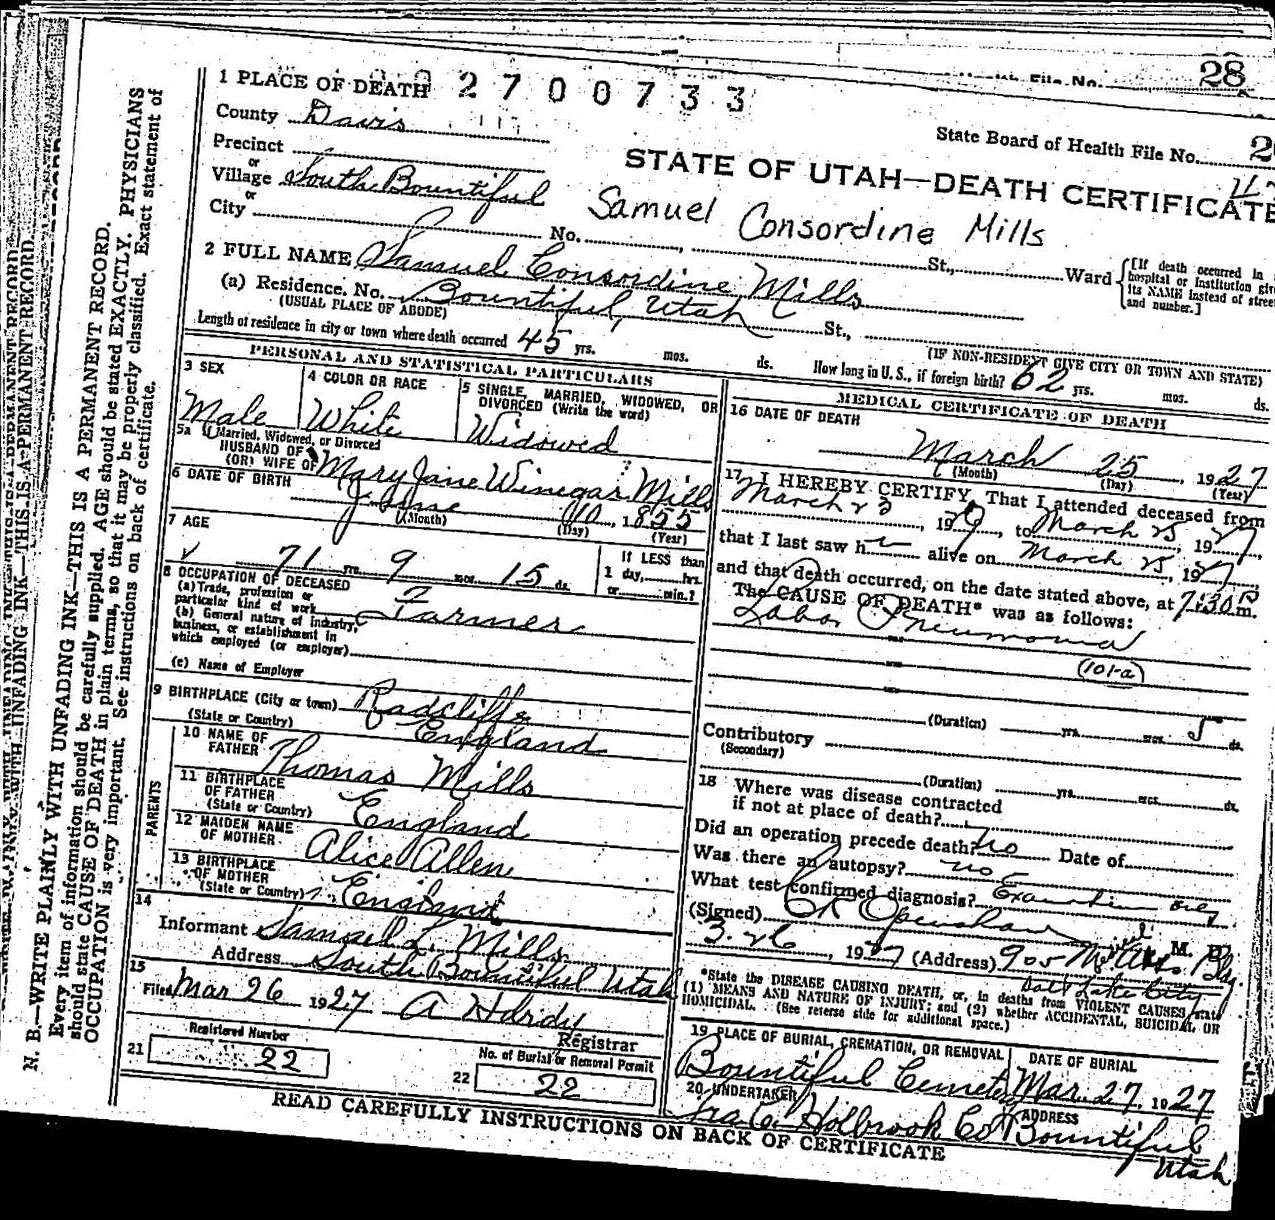 28
File No.
1 PLACE OF DEATH 2700733
County Davis
State Board of Health File No. 2
Precinct
or
STATE OF UTAH—DEATH CERTIFICATE
Village South Bountiful
or
Samuel Consordine Mills
City No. , St., Ward
{[If death occurred in
hospital or institution
its NAME instead of
and number.]
2 FULL NAME Samuel Consordine Mills
(a) Residence. No. Bountiful, Utah St.,
(USUAL PLACE OF ABODE)
(IF NON-RESIDENT GIVE CITY OR TOWN AND STATE)
Length of residence in city or town where death occurred 45 yrs. mos. ds. How long in U. S., if foreign birth? 62 yrs. mos. ds.
PERSONAL AND STATISTICAL PARTICULARS
3 SEX
Male
4 COLOR OR RACE
White
5 SINGLE, MARRIED, WIDOWED, OR
DIVORCED (Write the word)
Widowed
5a If Married, Widowed, or Divorced
HUSBAND OF
(OR) WIFE OF Mary Jane Winegar Mills
6 DATE OF BIRTH
June 10, 1855
(Month) (Day) (Year)
7 AGE
71 yrs. 9 mos. 15 ds.
If LESS than
1 day, hrs.
or min.?
8 OCCUPATION OF DECEASED
(a) Trade, profession or
particular kind of work Farmer
(b) General nature of industry,
business, or establishment in
which employed (or employer)
(c) Name of Employer
9 BIRTHPLACE (City or town) Radcliffe
(State or Country) England
PARENTS
10 NAME OF
FATHER Thomas Mills
11 BIRTHPLACE
OF FATHER
(State or Country) England
12 MAIDEN NAME
OF MOTHER Alice Allen
13 BIRTHPLACE
OF MOTHER
(State or Country) England
14
Informant Samuel L. Mills
Address South Bountiful Utah
15
Filed Mar 26 1927 A Hardy
Registrar
Registered Number
21 22
No. of Burial or Removal Permit
22 22
MEDICAL CERTIFICATE OF DEATH
16 DATE OF DEATH
March 25, 1927
(Month) (Day) (Year)
17 I HEREBY CERTIFY, That I attended deceased from
March 23, 1927, to March 25, 1927,
that I last saw h alive on March 25, 1927,
and that death occurred, on the date stated above, at 7:30 P m.
The CAUSE OF DEATH* was as follows:
Lobar Pneumonia
(101-a)
(Duration) yrs. mos. 5 ds.
Contributory
(Secondary)
(Duration) yrs. mos. ds.
18 Where was disease contracted
if not at place of death?
Did an operation precede death? no Date of
Was there an autopsy? no
What test confirmed diagnosis? Examination only
(Signed) Openshaw, M. D.
3-26, 1927 (Address) 905 Bldg
Salt Lake City
*State the DISEASE CAUSING DEATH, or, in deaths from VIOLENT CAUSES, state
(1) MEANS AND NATURE OF INJURY; and (2) whether ACCIDENTAL, SUICIDAL OR
HOMICIDAL. (See reverse side for additional space.)
19 PLACE OF BURIAL, CREMATION, OR REMOVAL
Bountiful Cemetery
DATE OF BURIAL
Mar. 27, 1927
20 UNDERTAKER
Holbrook Co
ADDRESS
Bountiful
Utah
READ CAREFULLY INSTRUCTIONS ON BACK OF CERTIFICATE
N. B.—WRITE PLAINLY WITH UNFADING INK—THIS IS A PERMANENT RECORD.
Every item of information should be carefully supplied. AGE should be stated EXACTLY. PHYSICIANS
should state CAUSE OF DEATH in plain terms, so that it may be properly classified. Exact statement of
OCCUPATION is very important. See instructions on back of certificate.
WITH UNFADING INK—THIS IS A PERMANENT RECORD.